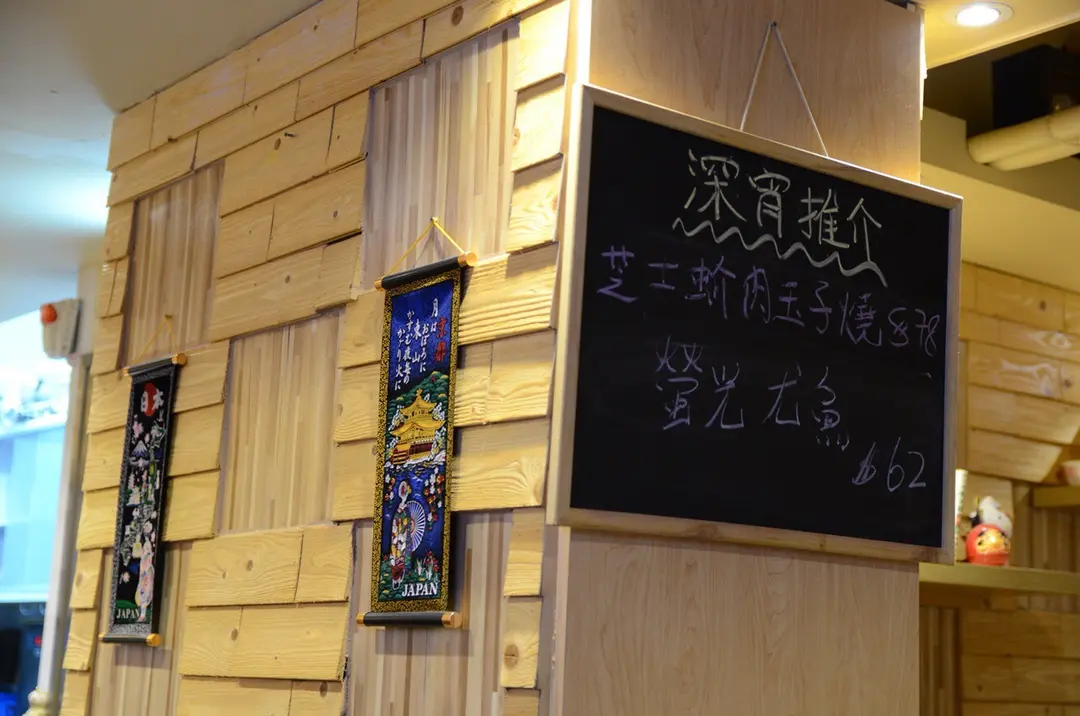 日本
JAPAN
京都
月は
おぼろに
東山
かすむ夜毎の
かがり火に
JAPAN
深宵推介
芝士蚧肉玉子燒 $78
螢光尤魚
$62